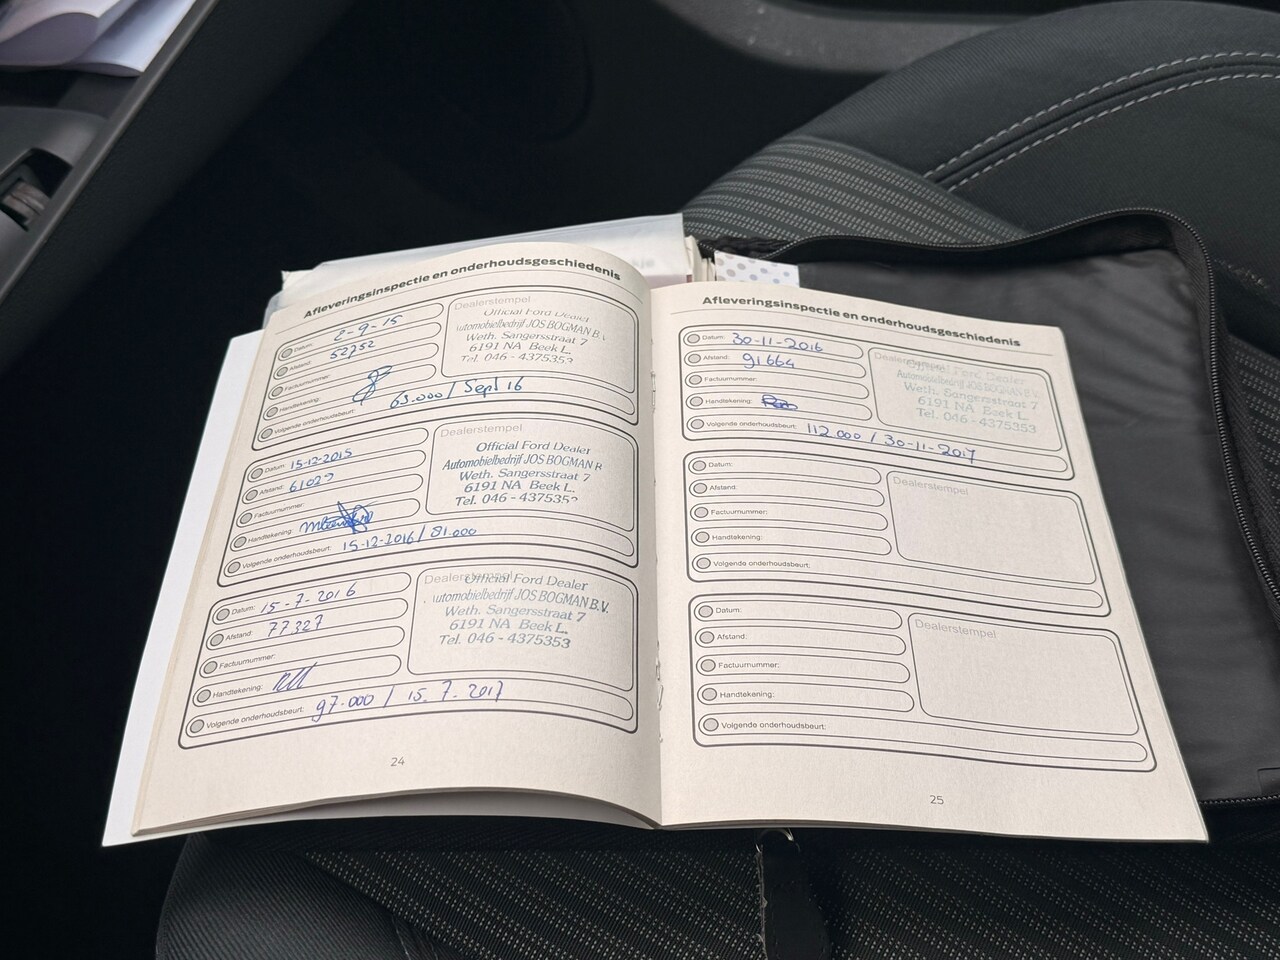 Afleveringsinspectie en onderhoudsgeschiedenis
Datum: 2-9-15
Afstand: 52752
Factuurnummer:
Handtekening:
Volgende onderhoudsbeurt: 63.000 / Sept 16
Dealerstempel
Official Ford Dealer
utomobielbedrijf JOS BOGMAN B.V
Weth. Sangersstraat 7
6191 NA Beek L.
Tel. 046 - 4375353
Datum: 15-12-2015
Afstand:
Factuurnummer:
Handtekening:
Volgende onderhoudsbeurt: 15-12-2016 / 81.000
Dealerstempel
Official Ford Dealer
Automobielbedrijf JOS BOGMAN B
Weth. Sangersstraat 7
6191 NA Beek L.
Tel. 046 - 437535
Datum: 15-7-2016
Afstand: 77327
Factuurnummer:
Handtekening:
Volgende onderhoudsbeurt: 97.000 / 15.7.2017
Dealerstempel
Official Ford Dealer
utomobielbedrijf JOS BOGMAN B.V.
Weth. Sangersstraat 7
6191 NA Beek L.
Tel. 046 - 4375353
24
Afleveringsinspectie en onderhoudsgeschiedenis
Datum: 30-11-2016
Afstand: 91664
Factuurnummer:
Handtekening:
Volgende onderhoudsbeurt: 112.000 / 30-11-2017
Dealerstempel
Official Ford Dealer
Automobielbedrijf JOS BOGMAN B.V.
Weth. Sangersstraat 7
6191 NA Beek L.
Tel. 046 - 4375353
Datum:
Afstand:
Factuurnummer:
Handtekening:
Volgende onderhoudsbeurt:
Dealerstempel
Datum:
Afstand:
Factuurnummer:
Handtekening:
Volgende onderhoudsbeurt:
Dealerstempel
25